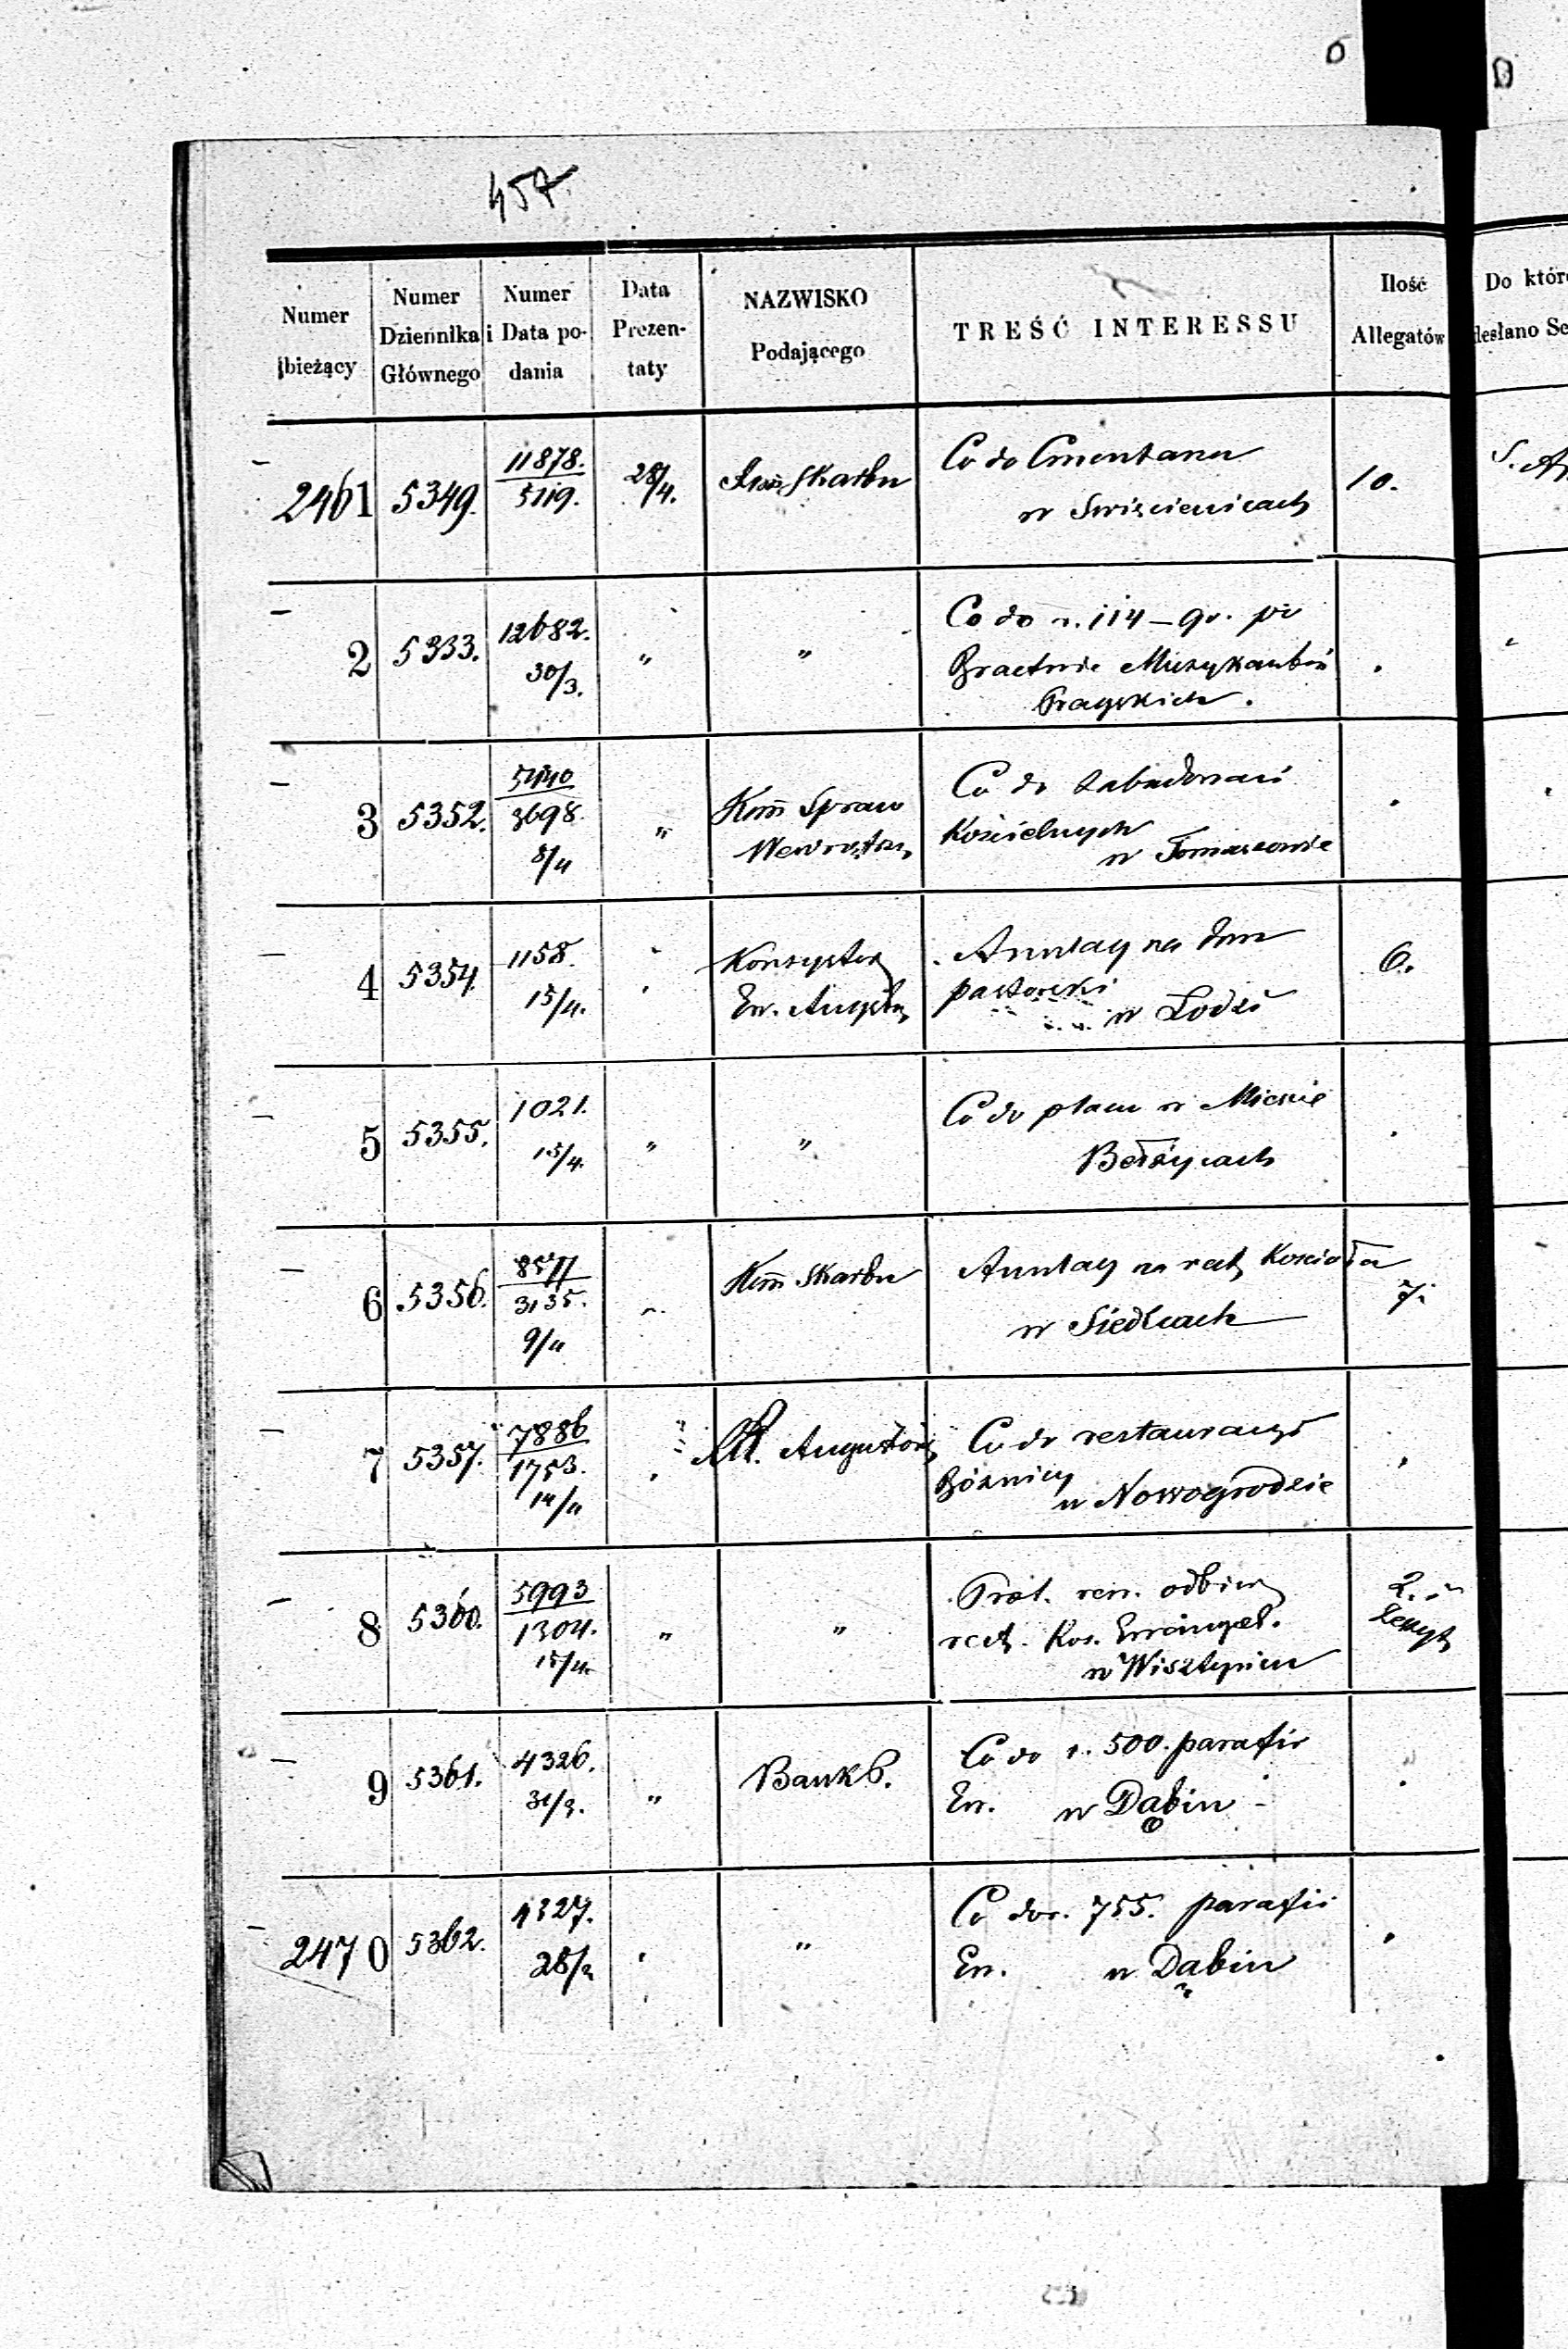 457
Numer bieżący
Numer Dziennika Głównego
Numer i Data podania
Data Prezentaty
NAZWISKO Podającego
TREŚĆ INTERESSU
Ilość Allegatów
Do któr
desłano Se
2461 5349. 11878. 28/4. Skarbu Co do Cmentarza 10. S.
5119. w Swiscienicach
2 5333. 12682. " " Co do r. 114 – gr. po
30/3. Bractwie Muzykantów
Pragskich.
3 5352. 5440 " Kom̃ Spraw Co do zabudowań
3698. Wewnętrz Kościelnych
8/4 w Tomaszowie
4 5354. 1158. Konsystorz Anszlag na dom 6.
15/4. Ew. Augsb pastorski
w Łodzi
5 5355. 1021. " " Co do placu w Mieście
15/4. Bełżycach
6 5356. 8577 Kom̃ Skarbu Anszlag na rest Kościoła 7.
3135. w Siedlcach
9/4
7 5357. 7886 Augustows Co do restauracyi
1753. Bóżnicy
14/4 w Nowogrodzie
8 5360. 5993 " " Prot. rew. odbior 2.
1304. rest. Koś. Ewangel. zeszyt
15/4. w Wisztyniu
9 5361. 4326. " Bank P. Co do r. 500. parafii
31/3. Ew. w Dąbiu
2470 5362. 4327. " Co do r. 755. parafii
28/3 Ew. w Dąbiu